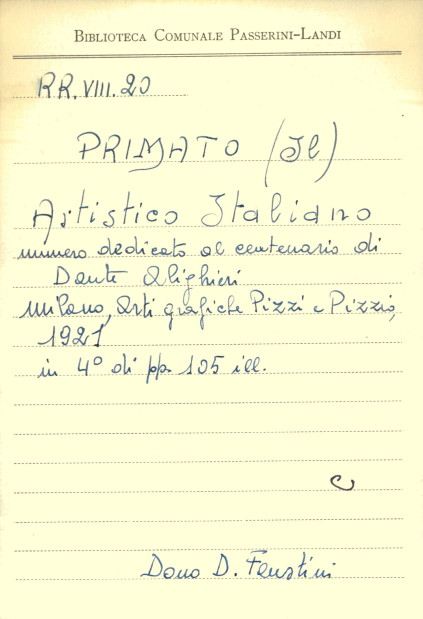 BIBLIOTECA COMUNALE PASSERINI-LANDI
RR.VIII.20
PRIMATO (Il)
Artistico Italiano
numero dedicato al centenario di
Dante Alighieri
Milano, Arti grafiche Pizzi e Pizzio,
1921
in 4° di pp. 105 ill.
C
Dono D. Faustini